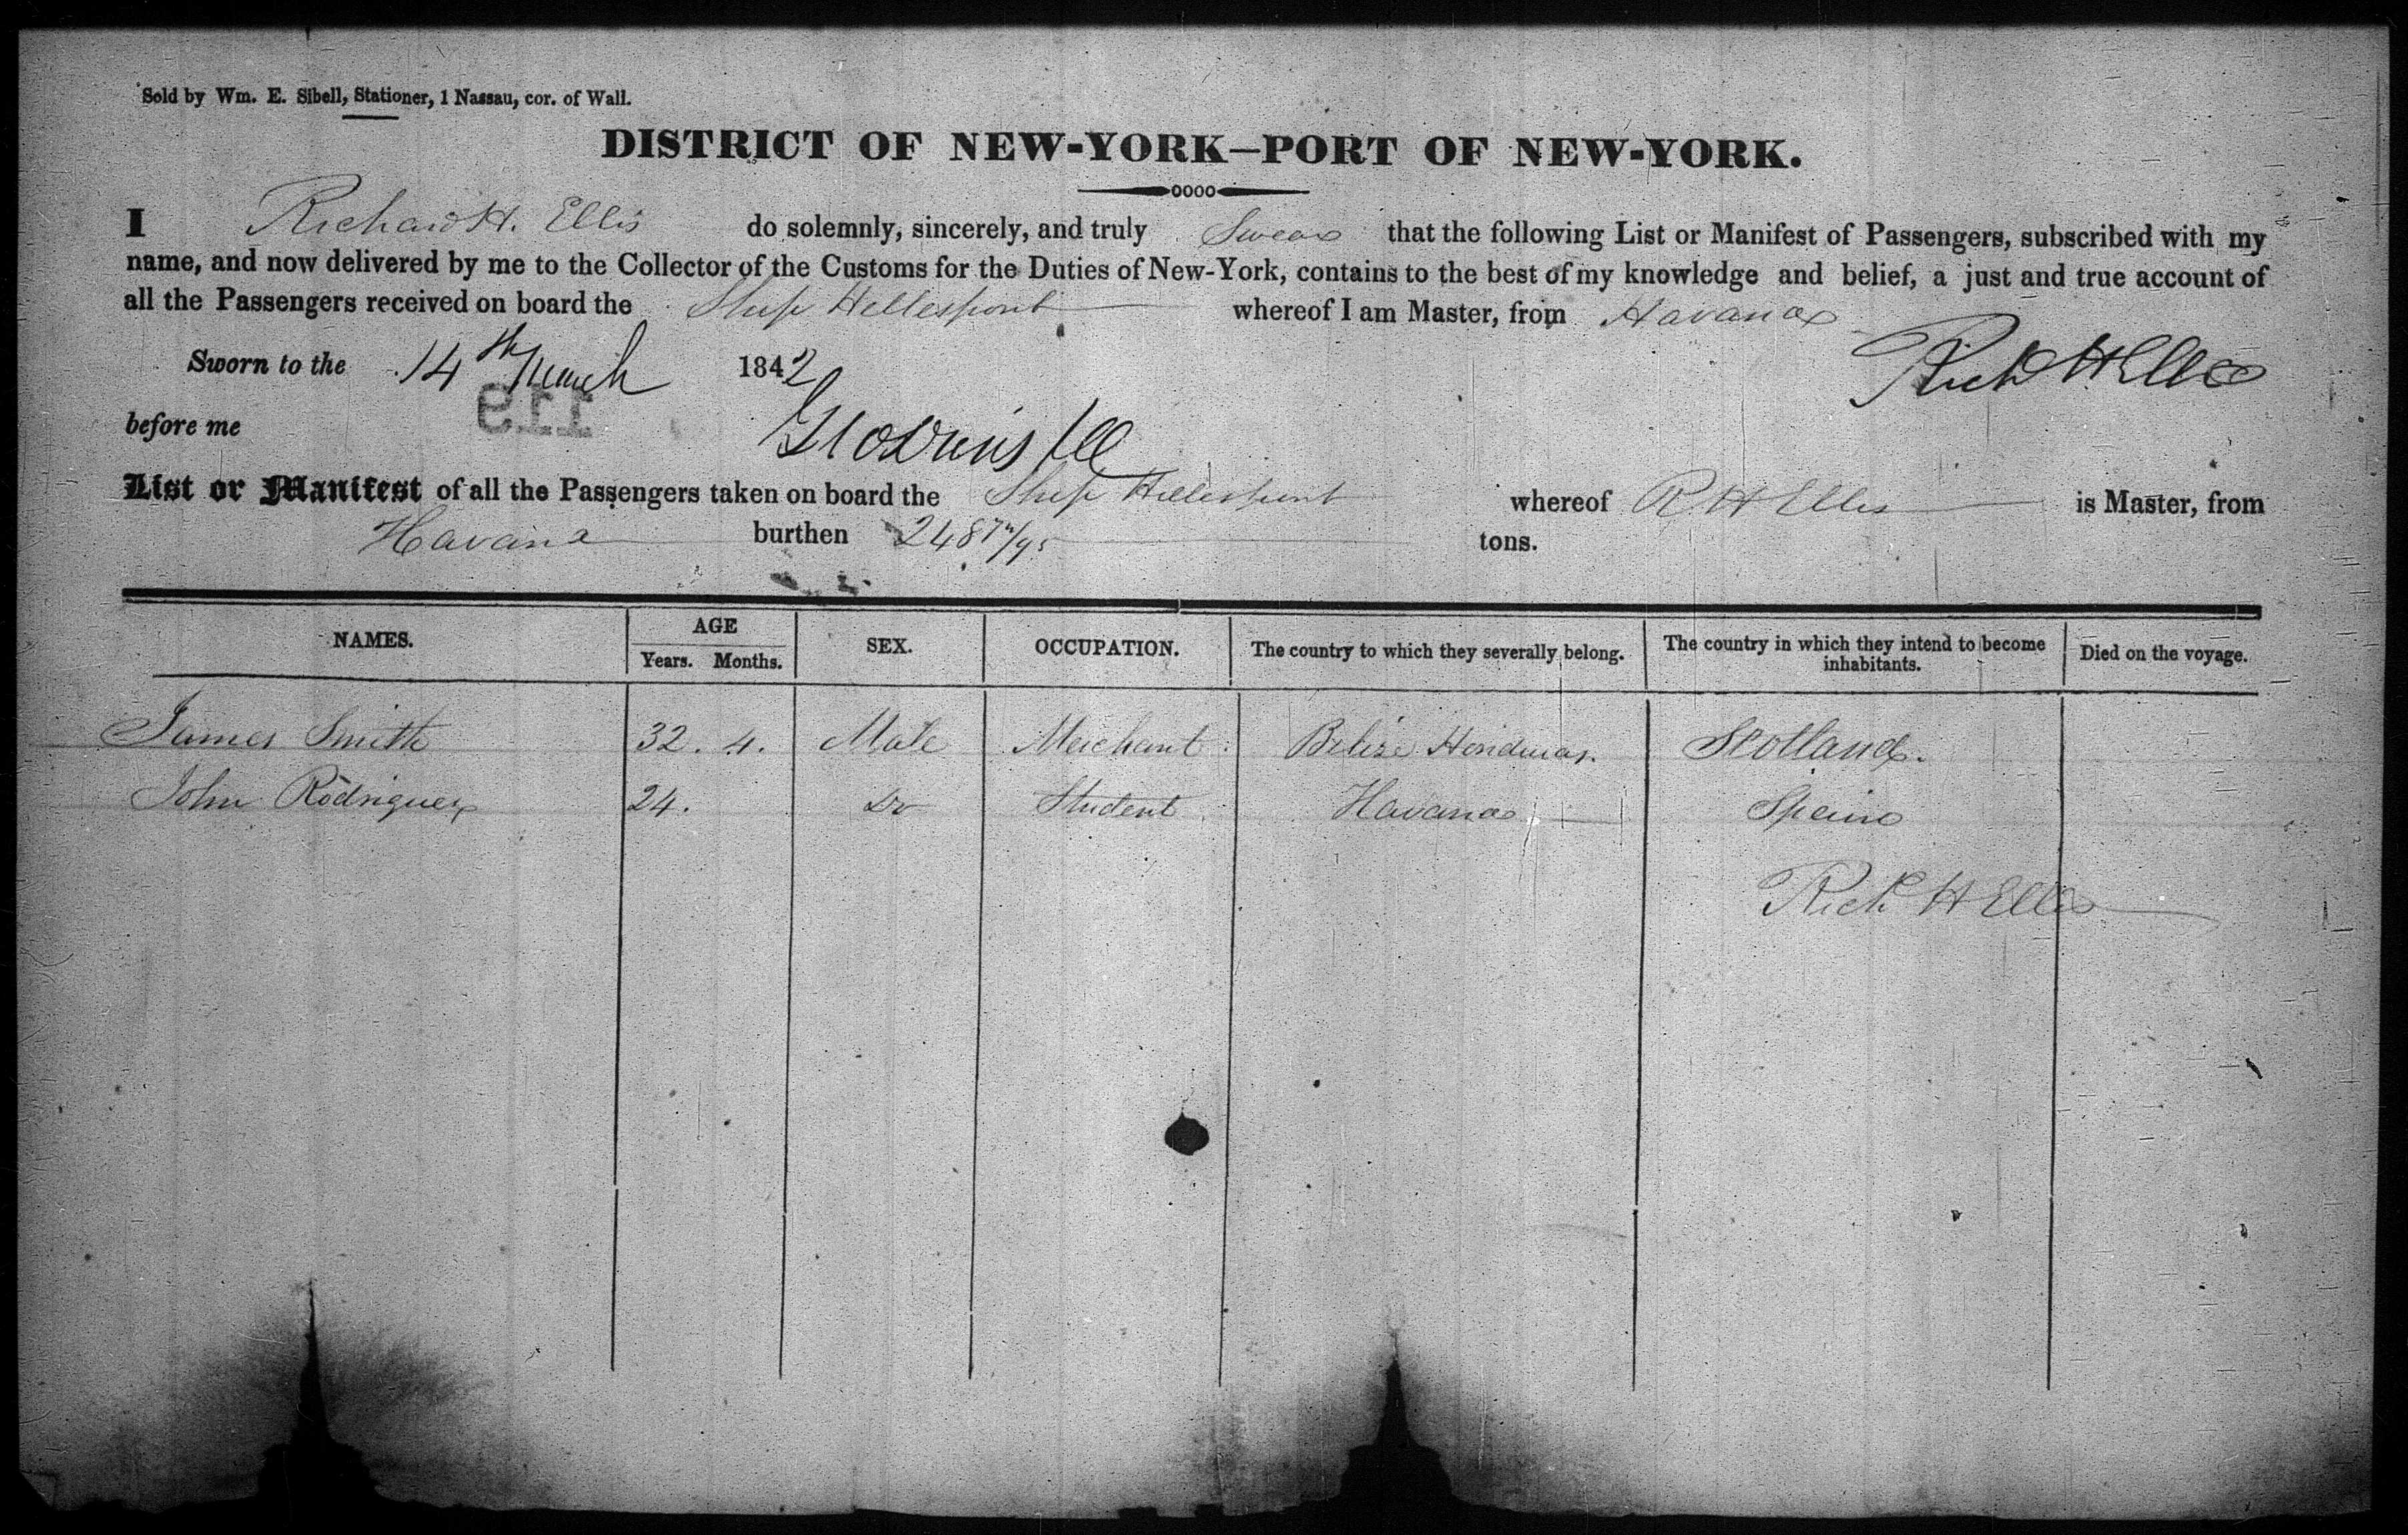 Sold by Wm. E. Sibell, Stationer, 1 Nassau, cor. of Wall.
DISTRICT OF NEW-YORK—PORT OF NEW-YORK.
I Richard H. Ellis do solemnly, sincerely, and truly Swear that the following List or Manifest of Passengers, subscribed with my
name, and now delivered by me to the Collector of the Customs for the Duties of New-York, contains to the best of my knowledge and belief, a just and true account of
all the Passengers received on board the Ship Hellespont whereof I am Master, from Havana
Sworn to the 14th March 1842 Richd H Ellis
119
before me
List or Manifest of all the Passengers taken on board the Ship Hellespont whereof R H Ellis is Master, from
Havana burthen tons.
NAMES. AGE Years. Months. SEX. OCCUPATION. The country to which they severally belong. The country in which they intend to become inhabitants. Died on the voyage.
James Smith 32. 4. Male Merchant. Belize Honduras. Scotland.
John Rodriguez 24. Do Student. Havana Spain
Richd H Ellis